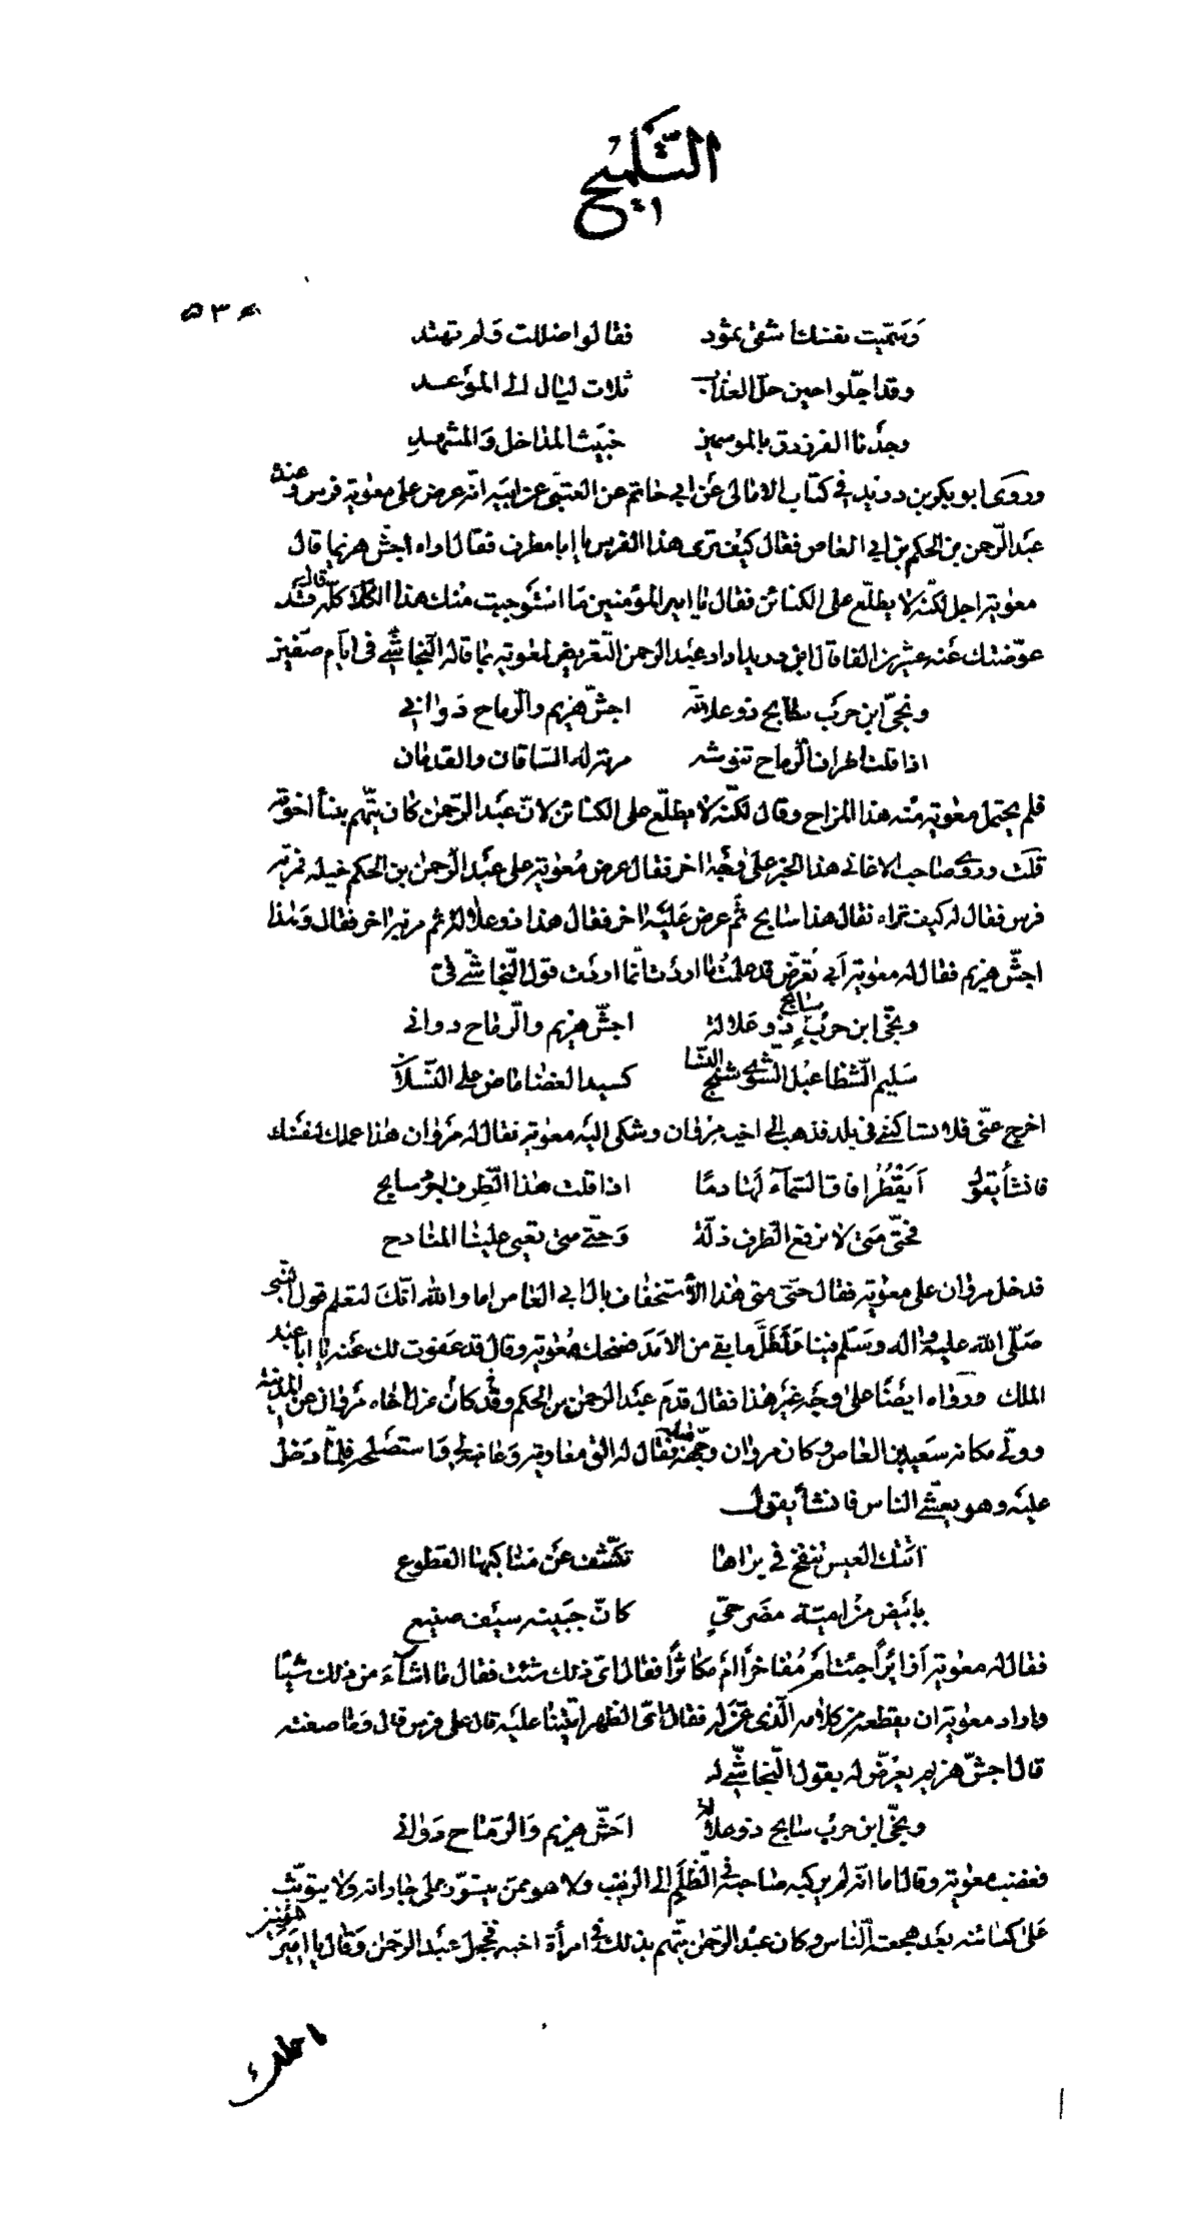 التلميح
٥٣٥
وسميت نفسك اشقى ثمود فقالوا ضللت ولم تهتد
وقد اجلوا حين حل العذاب ثلاث ليال الى الموعد
وجدنا الفرزدق بالموسمين خبيث المداخل والمشهد
وروى ابو بكر بن دريد في كتاب الامالى عن ابي حاتم عن العتبى عن ابيه انه عرض على معوية فرس وعنده
عبد الرحمن بن الحكم بن ابي العاص فقال كيف ترى هذا الفرس يا ابا مطرف فقال اراه اجش هزيما قال
معوية اجل لكنه لا يطلع على الكنائن فقال يا امير المؤمنين ما استوجبت منك هذا الكلام كله قال قد
عوضتك عنه عشرين الفا قال ابن دريد اراد عبد الرحمن التعريض لمعوية بما قاله النجاشي في ايام صفين
ونجى ابن حرب سابح ذو علالة اجش هزيم والرماح دواني
اذا قلت اطراف الرماح تنوشه مرته له الساقان والقدمان
فلم يحتمل معوية منه هذا المزاح وقال لكنه لا يطلع على الكنائن لان عبد الرحمن كان يتهم بنسأ اخوته
قلت وروى صاحب الاغاني هذا الخبر على وجه اخر فقال عرض معوية على عبد الرحمن بن الحكم خيله فمر به
فرس فقال له كيف تراه فقال هذا سابح ثم عرض عليه اخر فقال هذا ذو علالة ثم مر به اخر فقال وهذا
اجش هزيم فقال له معوية أبي تعرض قد علمت ما اردت انما اردت قول النجاشي في
ونجى ابن حرب سابح ذو علالة اجش هزيم والرماح دواني
سليم الشظا عبل الشوى شنج النسا كسيد الغضا ماض على النسلان
اخرج عني فلا تساكنى في بلد فذهب الى اخيه مروان وشكى اليه معوية فقال له مروان هذا عملك لنفسك
فانشأ يقول أيقطر افاق السماء لها دما اذا قلت هذا الطرف اجرد سابح
فحتى متى لا نرفع الطرف ذلة وحتى متى تعيى علينا المنادح
فدخل مروان على معوية فقال حتى متى هذا الاستخفاف بال ابي العاص اما والله انك لتعلم قول النبى
صلى الله عليه واله وسلم فينا ولقل ما بقي من الامد فضحك معوية وقال قد عفوت لك عنه يا ابا عبد
الملك ورواه ايضا على وجه غير هذا فقال قدم عبد الرحمن بن الحكم وقد كان عزل اخاه مروان عن المدينة
وولى مكانه سعيد بن العاص وكان مروان وجهه فقال له الق معاوية وعاتبه لي واستصلحه فلما دخل
عليه وهو يعشي الناس فانشأ يقول
اتتك العيس تنفخ في براها تكشف عن مناكبها القطوع
بابيض من امية مضرحي كان جبينه سيف صنيع
فقال له معوية أزائرا جئت ام مفاخرا ام مكاثرا فقال اي ذلك شئت فقال ما اشآء من ذلك شيئا
واراد معوية ان يقطعه من كلامه الذي عن له فقال اى الظهر اتيتنا عليه قال على فرس قال وما صفته
قال اجش هزيم يعرض له بقول النجاشي له
ونجى ابن حرب سابح ذو علالة اجش هزيم والرماح دواني
فغضب معوية وقال اما انه لم يركبه صاحبه في الظلم الى الريب ولا هو ممن يتسور على جاراته ولا يتوثب
على كنائنه بعد هجعة الناس وكان عبد الرحمن يتهم بذلك في امرأة اخيه فخجل عبد الرحمن وقال يا امير المؤمنين